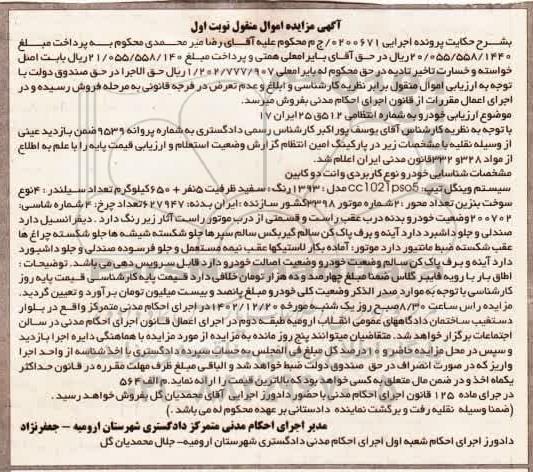 آگهی مزایده اموال منقول نوبت اول
بشرح حکایت پرونده اجرایی ۰۲۰۰۶۷۱/ج م محکوم علیه آقای رضا میر محمدی محکوم به پرداخت مبلغ
۲۰/۰۵۵/۵۵۸/۱۴۴۰ریال در حق آقای بایرامعلی همتی و پرداخت مبلغ ۲۱/۰۵۵/۵۵۸/۱۴۰ریال بابت اصل
خواسته و خسارت تاخیر تادیه در حق محکوم له بایرامعلی ۱/۲۰۲/۷۷۷/۹۰۷ریال حق الاجرا در حق صندوق دولت با
توجه به ارزیابی اموال منقول برابر نظریه کارشناسی و ابلاغ و عدم تعرض در فرجه قانونی به مرحله فروش رسیده و در
اجرای اعمال مقررات از قانون اجرای احکام مدنی بفروش میرسد.
موضوع ارزیابی خودرو به شماره انتظامی ۵۱۲ق۲۵ ایران ۱۷
با توجه به نظریه کارشناس آقای یوسف پوراکبر کارشناس رسمی دادگستری به شماره پروانه ۹۵۳۹ضمن بازدید عینی
از وسیله نقلیه با مشخصات زیر در پارکینگ امین انتظام گزارش وضعیت استعلام و ارزیابی قیمت پایه را با علم به اطلاع
از مواد ۳۲۸و ۳۳۲قانون مدنی ایران اعلام شد.
مشخصات شناسایی خودرو نوع کاربردی وانت دو کابین
سیستم وینگل تیپ: cc1021pso5 مدل : ۱۳۹۳رنگ : سفید ظرفیت ۵نفر + ۶۵۰کیلوگرم تعداد سیلندر : ۴نوع
سوخت بنزین تعداد محور :۲شماره موتور ۳۳۹۸کشور سازنده : ایران بدنه: ۶۲۷۹۴۷تعداد چرخ: ۴شماره شاسی:
۲۰۰۷۰۲وضعیت خودرو بدنه درب عقب راست و قسمتی از درب موتور راست آثار زیر رنگ دارد . دیفرانسیل دارد
صندلی و جلو داشبرد دارد آینه و برف پاک کن سالم گیربکس سالم سپرها جلو شکسته شیشه ها جلو شکسته چراغ ها
عقب شکسته ضبط مانتیور دارد موتور: آماده بکار لاستیکها عقب نیمه مستعمل و جلو فرسوده صندلی و جلو داشبورد
دارد آینه و برف پاک کن سالم وضعیت خودرو وضعیت اصالت خودرو دارد قابل سرویس دهی می باشد. توضیحات :
اطاق بار با رویه فایبر گلاس ضمنا مبلغ چهارصد و ده هزار تومان خلافی دارد قیمت پایه کارشناسی قیمت پایه روز
کارشناسی با توجه به موارد صدر الذکر وضعیت کلی خودرو مبلغ پانصد و بیست میلیون تومان برآورد و تعیین گردید.
مزایده راس ساعت ۸/۳۰صبح روز یک شنبه مورخه ۱۴۰۲/۱۲/۲۰در اجرای احکام مدنی متمرکز واقع در بلوار
دستغیب ساختمان دادگاههای عمومی انقلاب ارومیه طبقه دوم در اجرای اعمال قانون اجرای احکام مدنی در سالن
اجتماعات برگزار خواهد شد. متقاضیان میتوانند پنج روز مانده به مزایده از مورد مزایده با هماهنگی دایره اجرا بازدید
و سپس در محل مزایده حاضر و ده درصد کل مبلغ فی المجلس به حساب سپرده دادگستری با اخذ شناسه از واحد اجرا
واریز که در صورت انصراف در حق صندوق دولت ضبط خواهد شد و الباقی مبلغ ظرف مهلت مقرره در قانون حداکثر
یکماه اخذ و در ضمن مال متعلق به کسی خواهد بود که بالاترین قیمت را ارائه نماید. م الف ۵۶۴
در جرای ماده ۱۲۵ قانون اجرای احکام مدنی با حضور دادورز اجرای احکام آقای محمدیان گل بفروش خواهد رسید .
(ضمنا وسیله نقلیه رفت و برگشت نماینده دادستانی بر عهده محکوم له می باشد . )
مدیر اجرای احکام مدنی متمرکز دادگستری شهرستان ارومیه – جعفرنژاد
دادورز اجرای احکام شعبه اول اجرای احکام مدنی دادگستری شهرستان ارومیه- جلال محمدیان گل